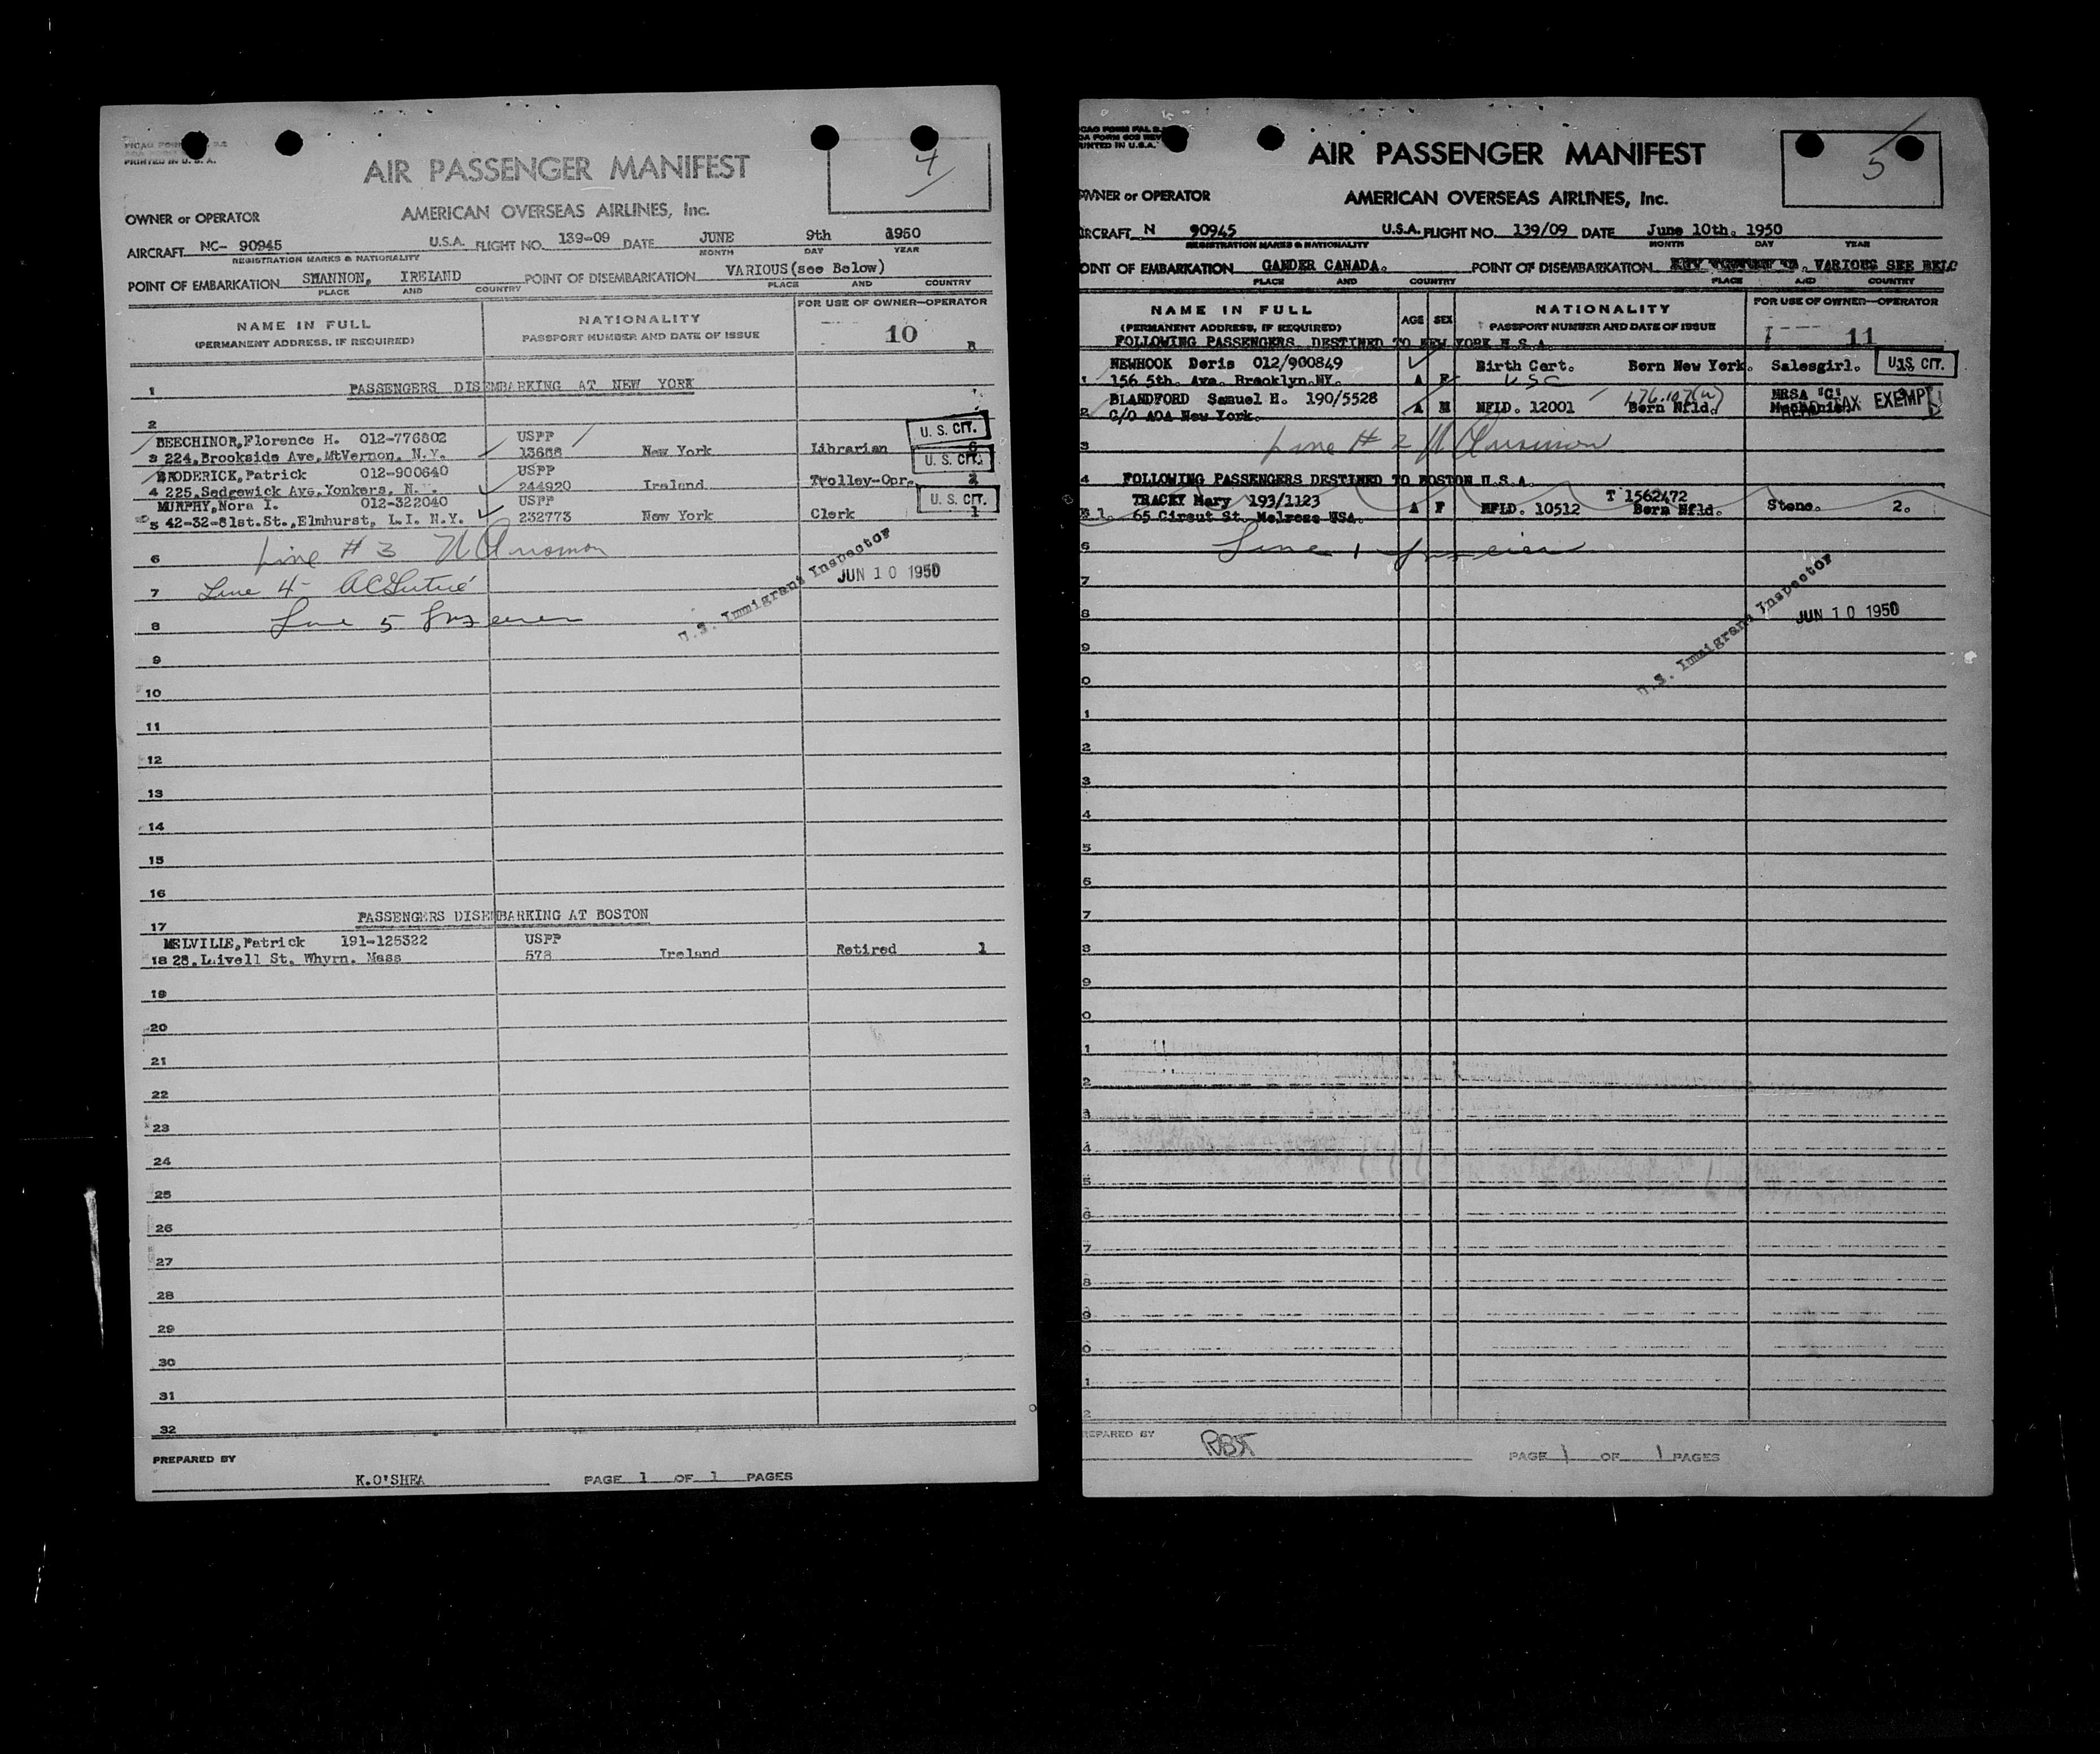 PRINTED IN U. S. A.
4
AIR PASSENGER MANIFEST
OWNER or OPERATOR
AMERICAN OVERSEAS AIRLINES, Inc.
AIRCRAFT NC- 90945 U.S.A. FLIGHT NO. 139-09 DATE JUNE 9th 1950
REGISTRATION MARKS & NATIONALITY MONTH DAY YEAR
POINT OF EMBARKATION SHANNON, IRELAND POINT OF DISEMBARKATION VARIOUS(see Below)
PLACE AND COUNTRY PLACE AND COUNTRY
NAME IN FULL NATIONALITY FOR USE OF OWNER—OPERATOR
(PERMANENT ADDRESS, IF REQUIRED) PASSPORT NUMBER AND DATE OF ISSUE 10
1 PASSENGERS DISEMBARKING AT NEW YORK
2
BEECHINOR,Florence H. 012-776802 USPP U. S. CIT.
3 224,Brookside Ave,MtVernon, N.Y. New York Librarian
BRODERICK,Patrick 012-900640 USPP U. S. CIT.
4 225,Sedgewick Ave,Yonkers, N. 244920 Ireland Trolley-Opr.
MURPHY,Nora I. 012-322040 USPP U. S. CIT.
5 42-32-81st.St.,Elmhurst, L.I. N.Y. 232773 New York Clerk 1
6 Line # 3
7 Line 4
8 Line 5
U.S. Immigrant Inspector
JUN 10 1950
9
10
11
12
13
14
15
16
17 PASSENGERS DISEMBARKING AT BOSTON
MELVILLE,Patrick 191-125322 USPP
18 28, St. Whyrn. Mass 578 Ireland Retired 1
19
20
21
22
23
24
25
26
27
28
29
30
31
32
PREPARED BY
K.O'SHEA PAGE 1 OF 1 PAGES
PRINTED IN U.S.A.
5
AIR PASSENGER MANIFEST
OWNER or OPERATOR
AMERICAN OVERSEAS AIRLINES, Inc.
AIRCRAFT N 90945 U.S.A. FLIGHT NO. 139/09 DATE June 10th. 1950
REGISTRATION MARKS & NATIONALITY MONTH DAY YEAR
POINT OF EMBARKATION GANDER CANADA. POINT OF DISEMBARKATION VARIOUS SEE BELO
PLACE AND COUNTRY PLACE AND COUNTRY
NAME IN FULL AGE SEX NATIONALITY FOR USE OF OWNER—OPERATOR
(PERMANENT ADDRESS, IF REQUIRED) PASSPORT NUMBER AND DATE OF ISSUE 11
FOLLOWING PASSENGERS DESTINED TO NEW YORK U.S.A.
NEWHOOK Doris 012/900849 Birth Cert. Born New York. Salesgirl. U. S. CIT.
1 156 5th. Ave. Brooklyn.NY. A F USC
BLANDFORD Samuel H. 190/5528 MRSA "G"
2 C/O AOA New York. A M NFLD. 12001 Born Nfld. Mechanic. TAX EXEMPT
3 Line # 2
4 FOLLOWING PASSENGERS DESTINED TO BOSTON U.S.A.
TRACEY Mary 193/1123 T 1562472
5 1. 65 Circut St. Melrose USA. A F NFLD. 10512 Born Nfld. Steno. 2.
6 Line 1
7
U.S. Immigrant Inspector
8 JUN 10 1950
9
0
1
2
3
4
5
6
7
8
9
0
1
2
3
4
5
6
7
8
9
0
1
2
PREPARED BY
PAGE 1 OF 1 PAGES